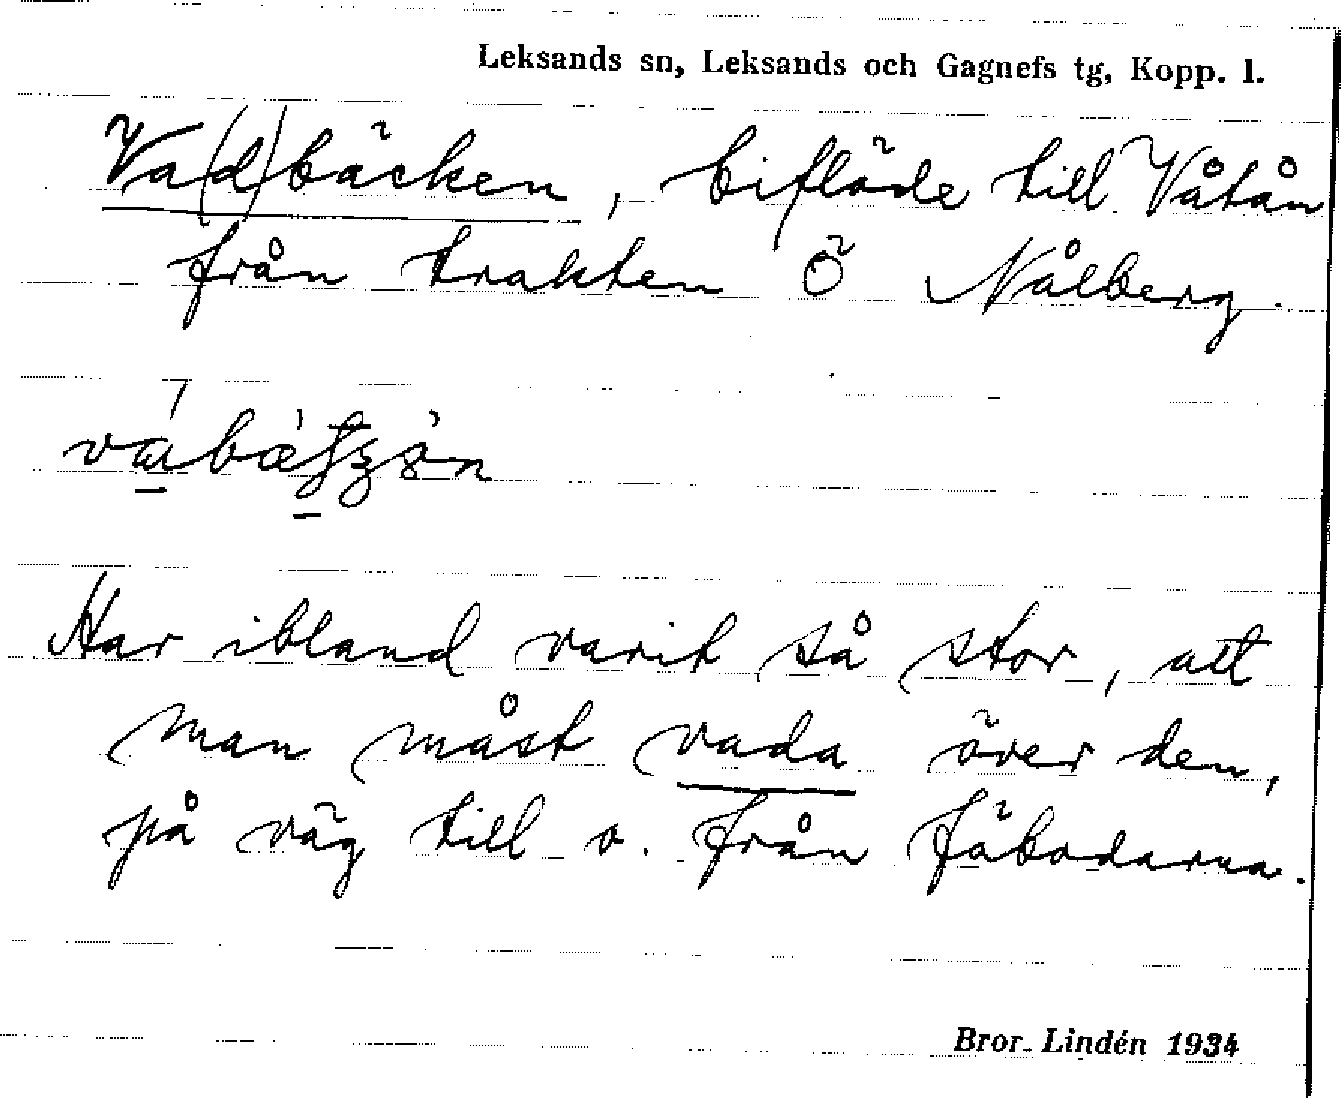 Leksands sn, Leksands och Gagnefs tg, Kopp. l.
Va(d)bäcken, biflöde till Våtån
från trakten Ö Nålberg.
Har ibland varit så stor, att
man måst vada över den,
på väg till o. från fäbodarna.
Bror Lindén 1934